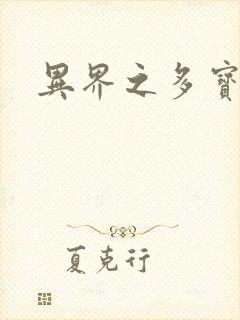 異界之多寶
夏克行